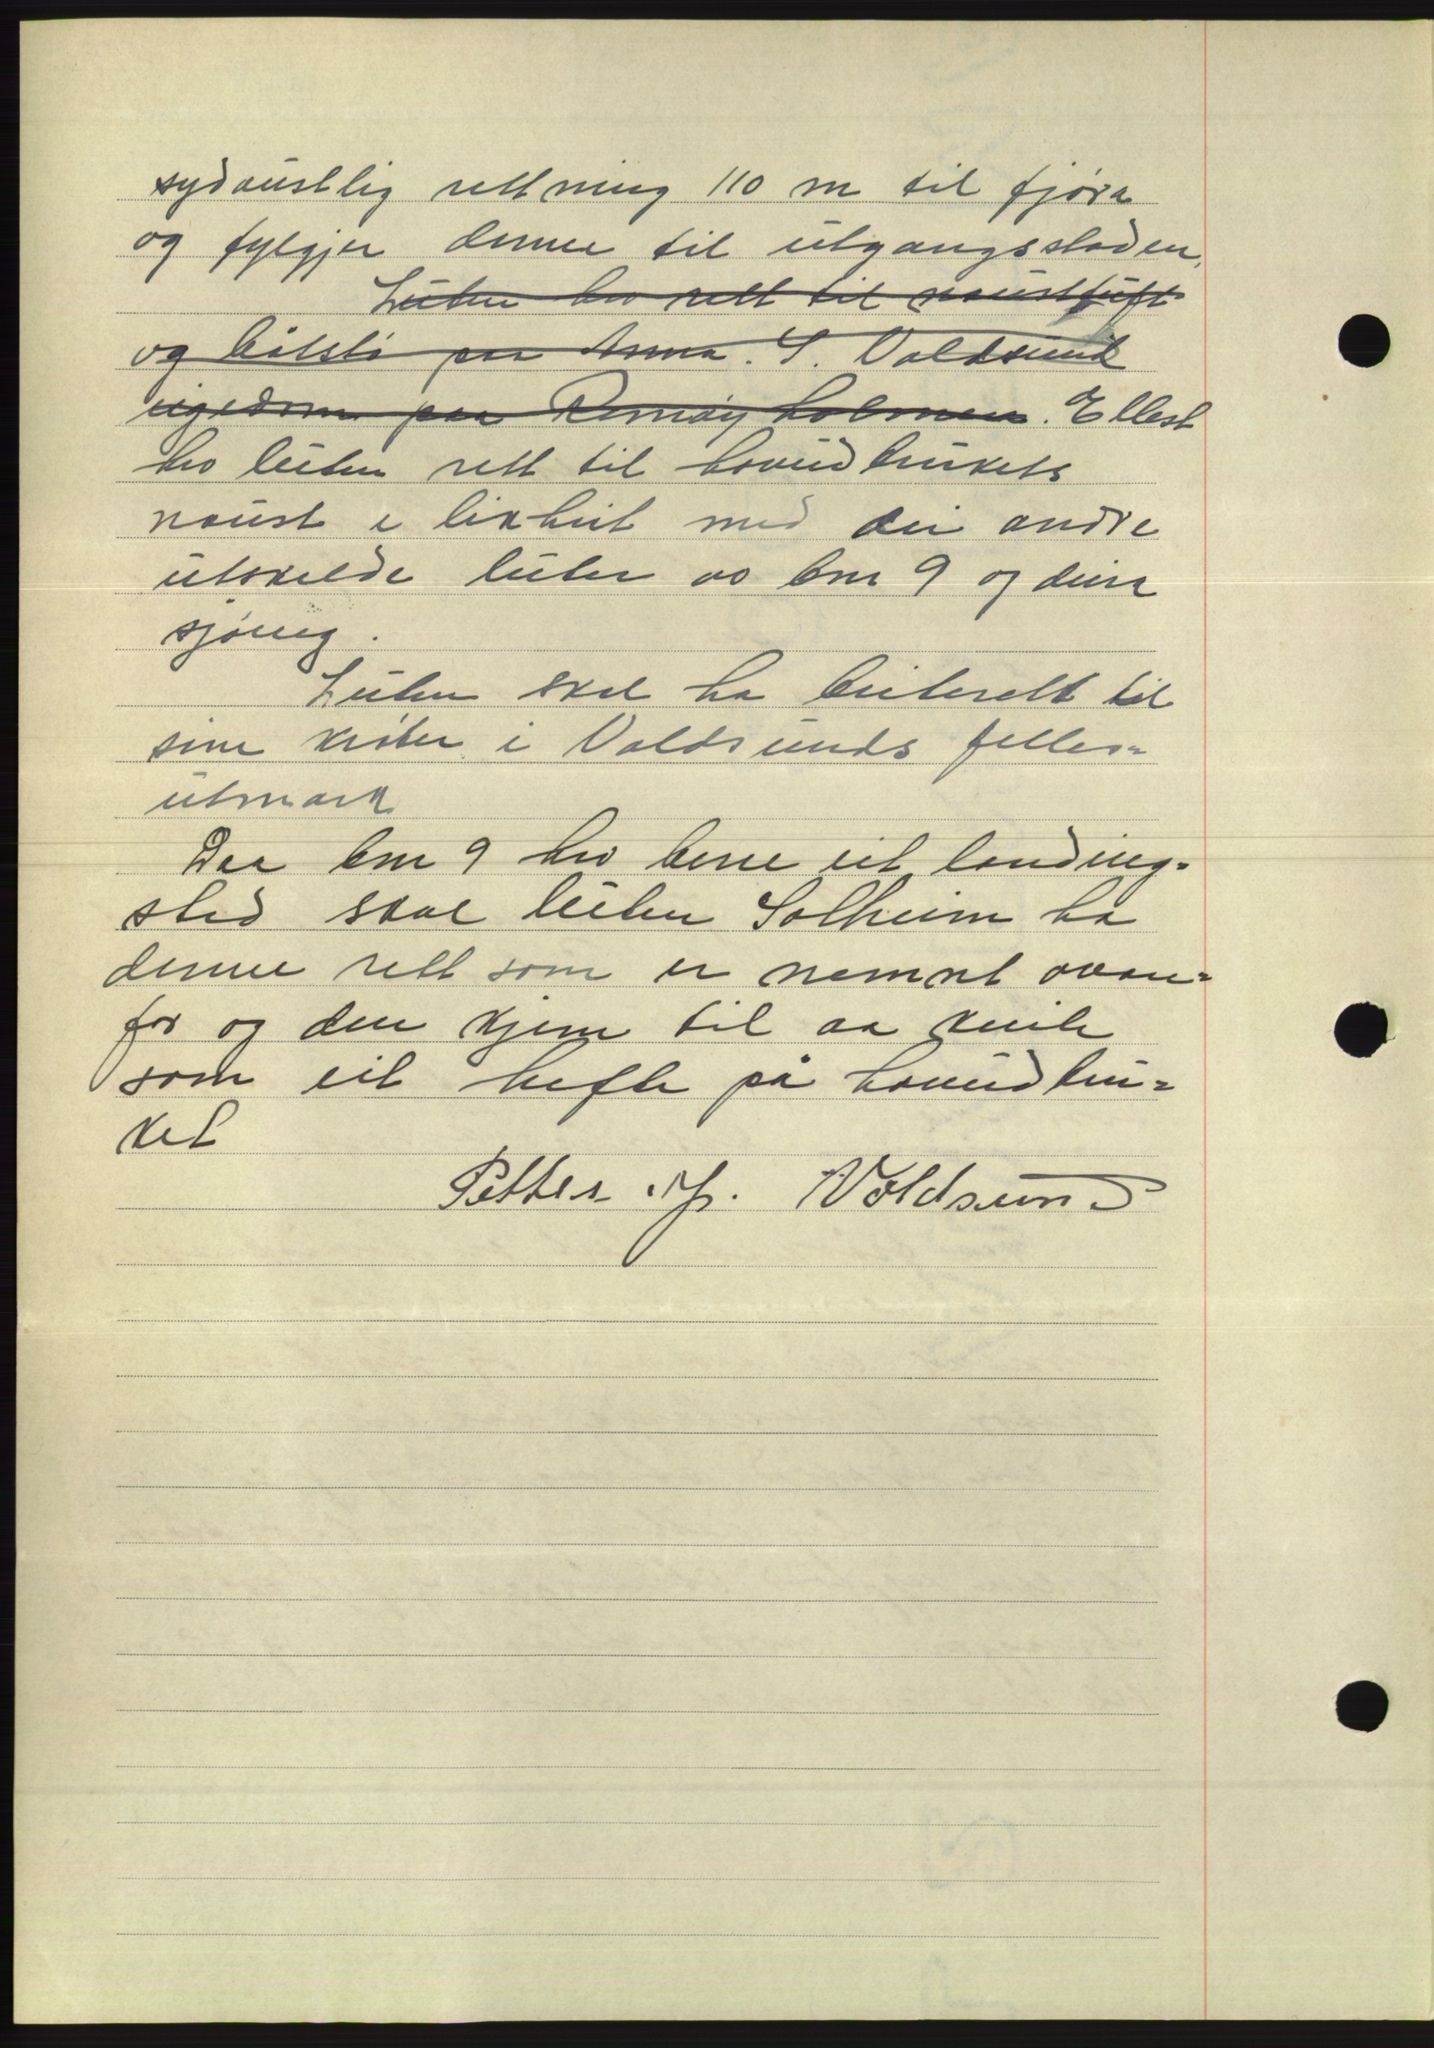 sydaustlig rettning 110 m til fjøra
og fylgjer denne til utgangsstaden.
Luten hev rett til nausttuft
og båtstø paa Anna. S. Valdsund
eigedom paa Remøyholmen. Ellest
hev luten rett til hovudbrukets
naust i likheit med dei andre
utskilde luter av bnr 9 og deira
sjøveg.
Luten skal ha beiterett til
sine krøter i Valdsunds felles=
utmark
Daa bnr 9 hev berre eit landing=
sted skal luten Solheim ha
denne rett som er nemnt ovan=
for og den kjem til aa kvile
som eit hefte på hovudbru=
ket
Petter P. Voldsund